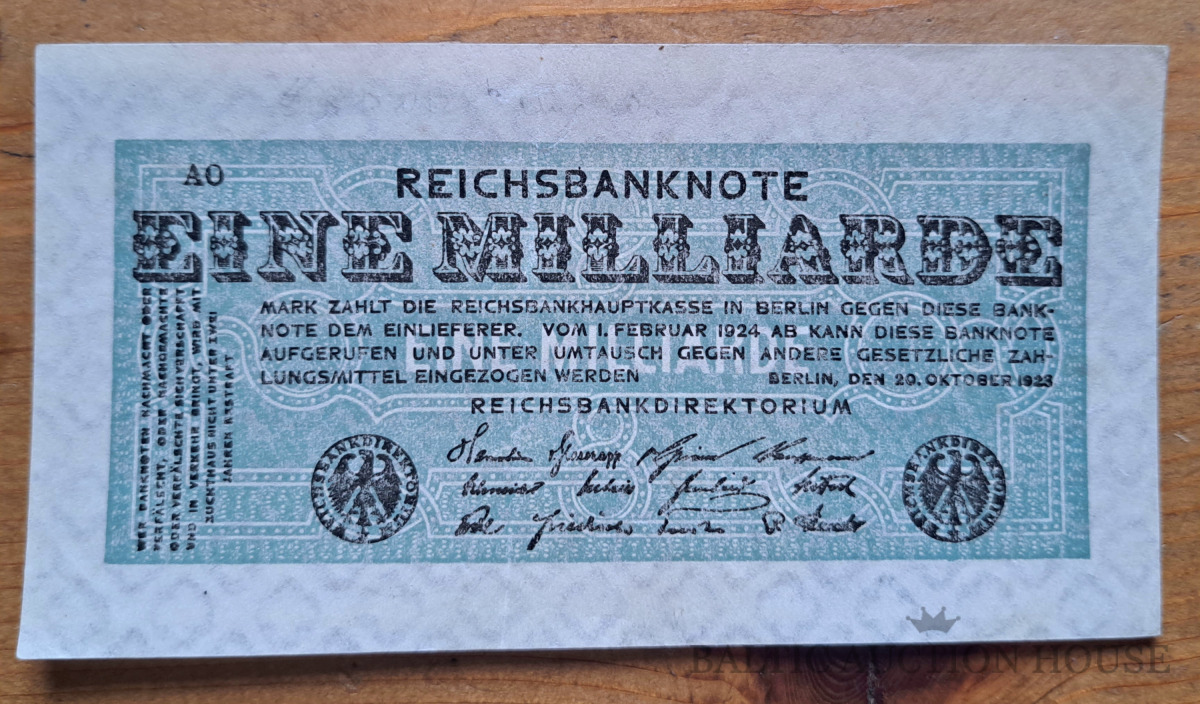 AO
REICHSBANKNOTE
EINE MILLIARDE
MARK ZAHLT DIE REICHSBANKHAUPTKASSE IN BERLIN GEGEN DIESE BANK-
NOTE DEM EINLIEFERER. VOM 1. FEBRUAR 1924 AB KANN DIESE BANKNOTE
AUFGERUFEN UND UNTER UMTAUSCH GEGEN ANDERE GESETZLICHE ZAH-
LUNGSMITTEL EINGEZOGEN WERDEN
BERLIN, DEN 20. OKTOBER 1923
EINE MILLIARDE
REICHSBANKDIREKTORIUM
WER BANKNOTEN NACHMACHT ODER
VERFÄLSCHT, ODER NACHGEMACHTE
ODER VERFÄLSCHTE SICH VERSCHAFFT
UND IN VERKEHR BRINGT, WIRD MIT
ZUCHTHAUS NICHT UNTER ZWEI
JAHREN BESTRAFT
REICHSBANKDIREKTORIUM
REICHSBANKDIREKTORIUM
BALTIC AUCTION HOUSE